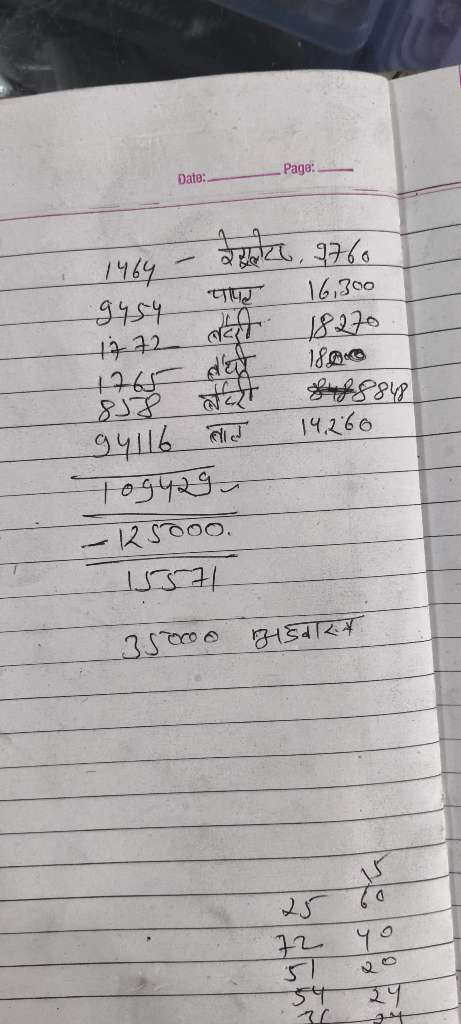 Date: Page:
1464 - 9760
9454 पापर 16,300
1772 लेदरी 18270
1765 लेदरी 18000
858 लेदरी 8848
94116 लाल 14,260
109429
- 125000.
15571
35000 अडवान्स
15
25 60
72 40
51 20
54 24